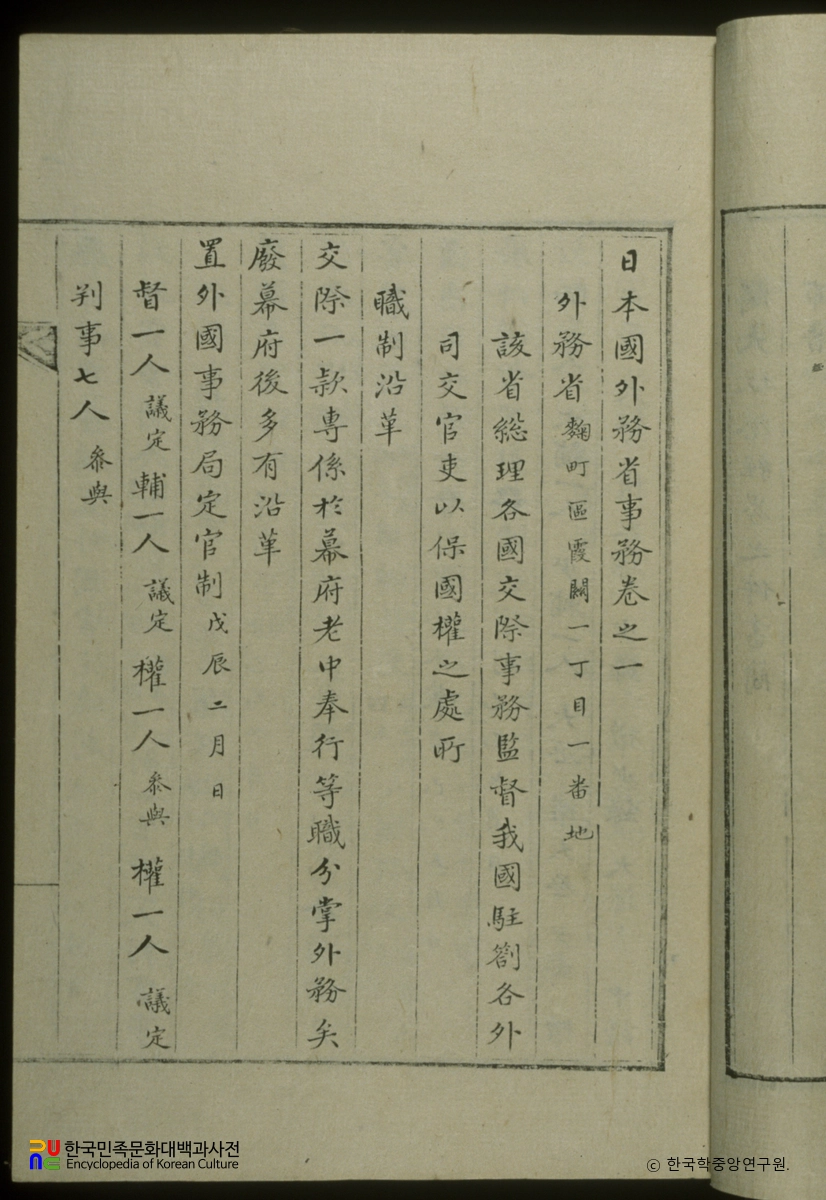 日本國外務省事務卷之一
外務省 麴町區霞關一丁目一番地
該省総理各國交際事務監督我國駐劄各外
司交官吏以保國權之處所
職制沿革
交際一款專係於幕府老中奉行等職分掌外務矣
廢幕府後多有沿革
置外國事務局定官制 戊辰二月日
督一人 議定 輔一人 議定 權一人 叅與 權一人 議定
判事七人 叅與
한국민족문화대백과사전
Encyclopedia of Korean Culture
© 한국학중앙연구원.